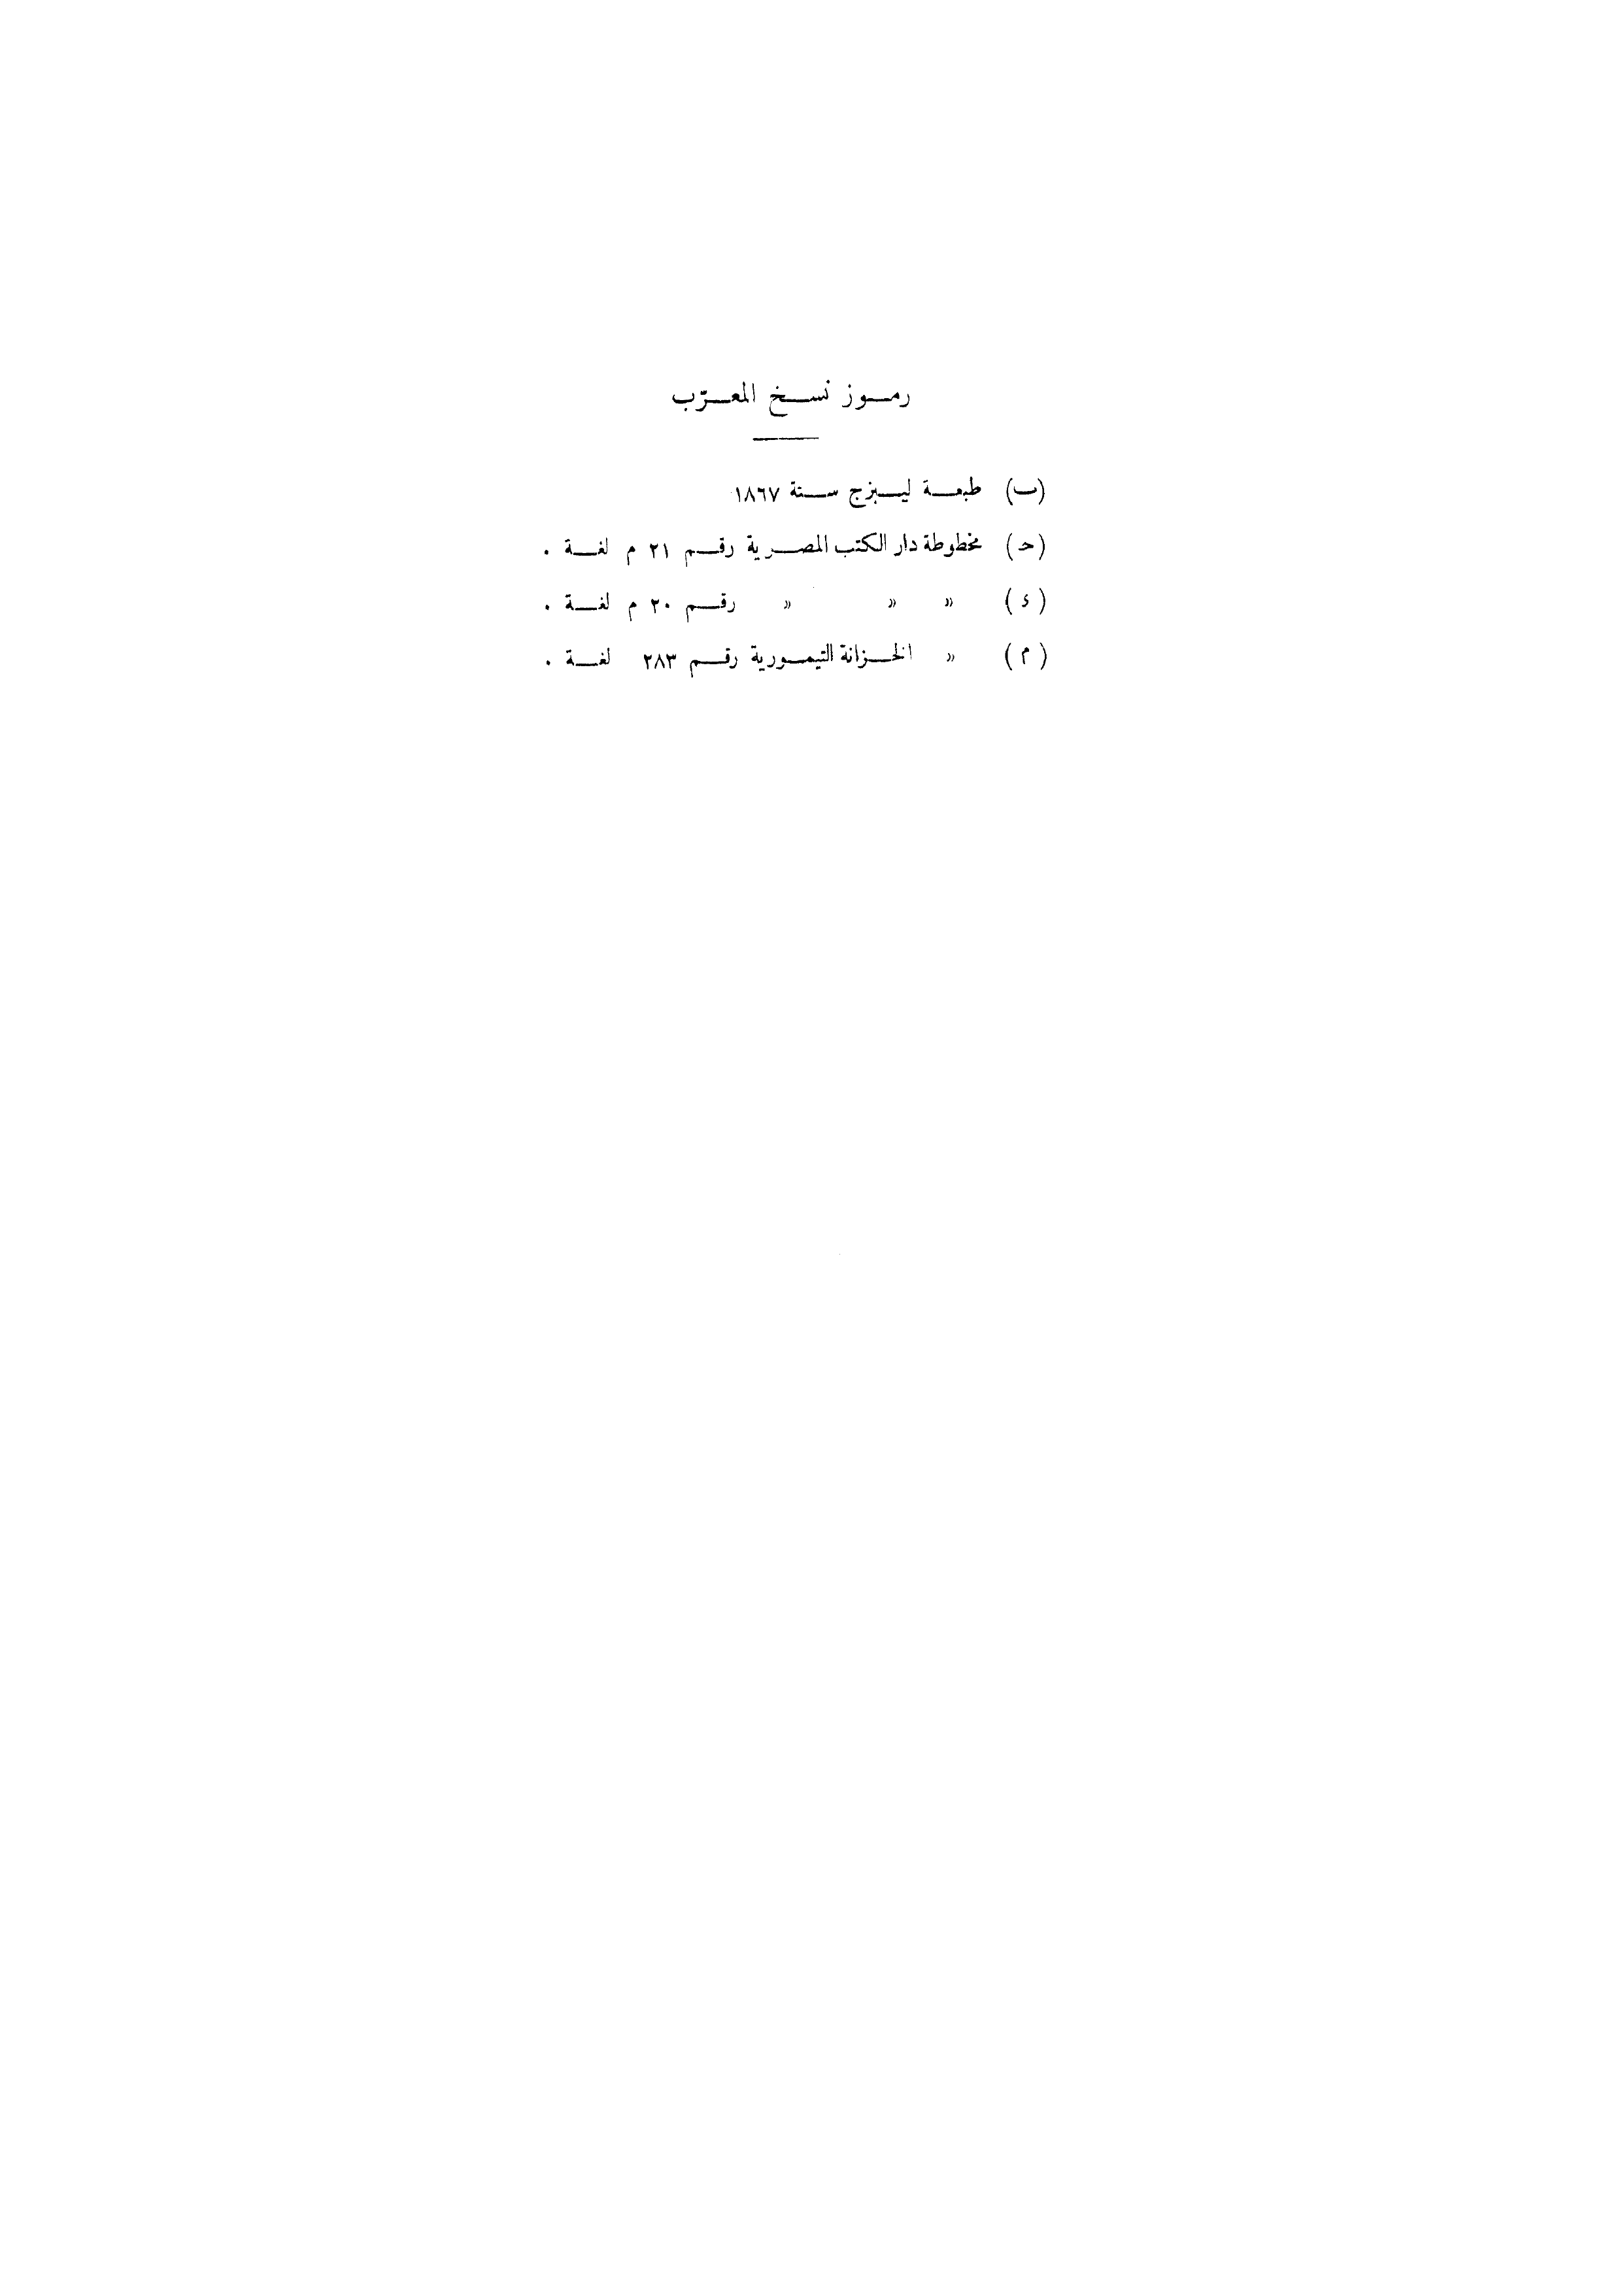 رموز نسخ المعرّب
(ب) طبعة ليبزج سنة ١٨٦٧
(حـ) مخطوطة دار الكتب المصرية رقم ٢١ م لغة .
(ء) » » » رقم ٢٠ م لغة .
(م) » الخزانة التيمورية رقم ٢٨٣ لغة .